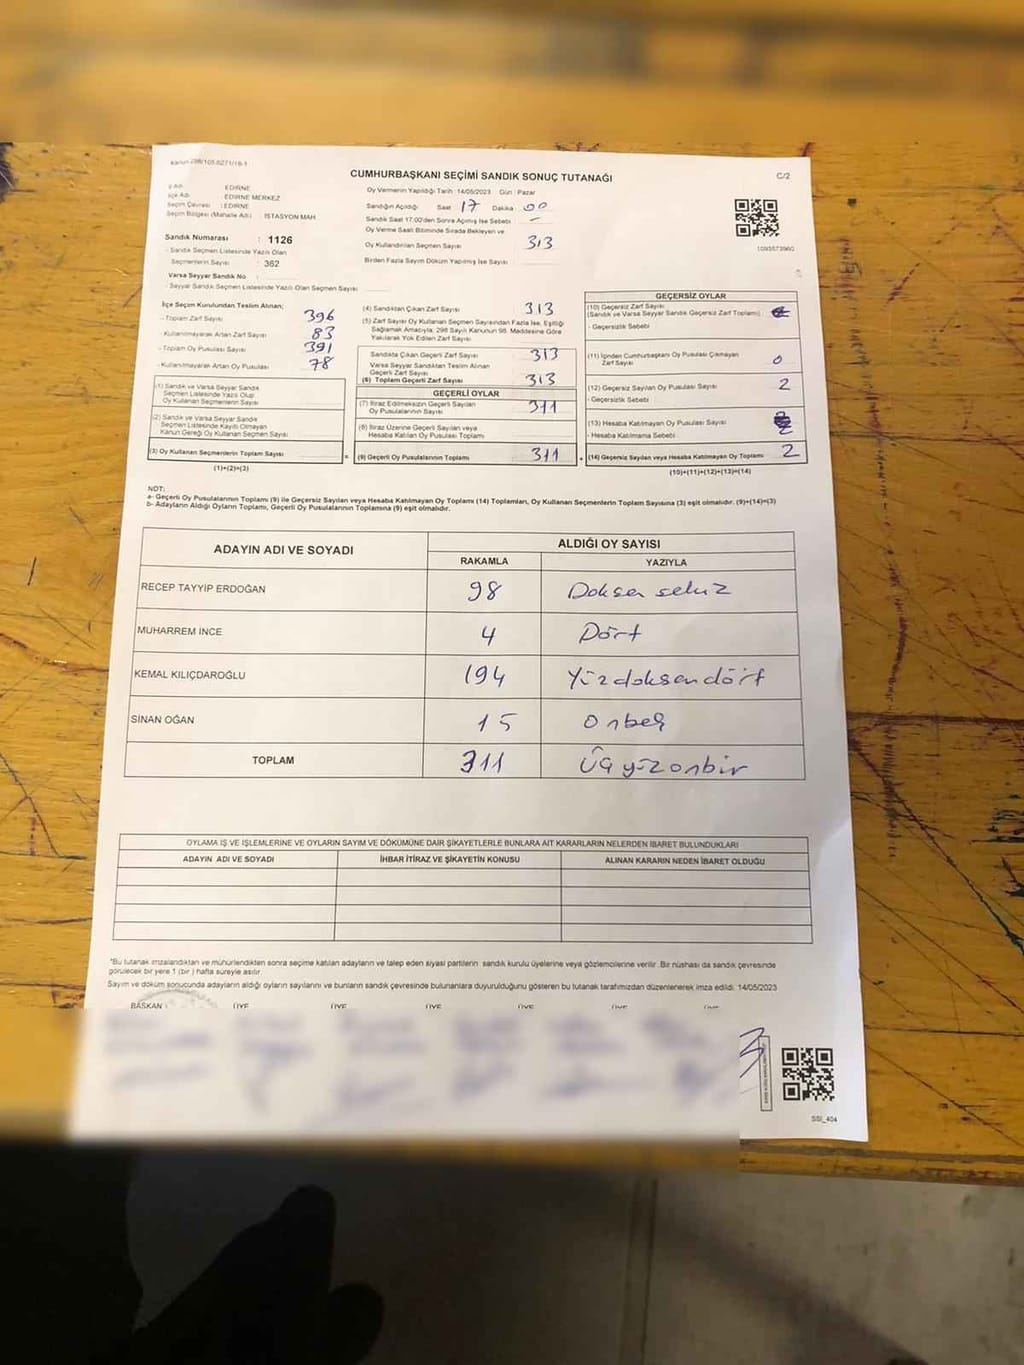 Kanun 298/105,6271/18-1
CUMHURBAŞKANI SEÇİMİ SANDIK SONUÇ TUTANAĞI
C/2
İl Adı : EDİRNE
İlçe Adı : EDİRNE MERKEZ
Seçim Çevresi : EDİRNE
Seçim Bölgesi (Mahalle Adı) : İSTASYON MAH.
Sandık Numarası : 1126
- Sandık Seçmen Listesinde Yazılı Olan
Seçmenlerin Sayısı : 362
Varsa Seyyar Sandık No :
- Seyyar Sandık Seçmen Listesinde Yazılı Olan Seçmen Sayısı
Oy Vermenin Yapıldığı Tarih : 14/05/2023 Gün : Pazar
Sandığın Açıldığı Saat 17 Dakika 00
Sandık Saat 17.00'den Sonra Açılmış İse Sebebi –
Oy Verme Saati Bitiminde Sırada Bekleyen ve
Oy Kullandırılan Seçmen Sayısı 313
Birden Fazla Sayım Döküm Yapılmış İse Sayısı
İlçe Seçim Kurulundan Teslim Alınan;
- Toplam Zarf Sayısı 396
- Kullanılmayarak Artan Zarf Sayısı 83
- Toplam Oy Pusulası Sayısı 391
- Kullanılmayarak Artan Oy Pusulası 78
(1) Sandık ve Varsa Seyyar Sandık
Seçmen Listesinde Yazılı Olup
Oy Kullanan Seçmenlerin Sayısı
(2) Sandık ve Varsa Seyyar Sandık
Seçmen Listesinde Kayıtlı Olmayan
Kanun Gereği Oy Kullanan Seçmen Sayısı
(3) Oy Kullanan Seçmenlerin Toplam Sayısı
(1)+(2)=(3)
=
(4) Sandıktan Çıkan Zarf Sayısı 313
(5) Zarf Sayısı Oy Kullanan Seçmen Sayısından Fazla İse, Eşitliği
Sağlamak Amacıyla; 298 Sayılı Kanunun 98. Maddesine Göre
Yakılarak Yok Edilen Zarf Sayısı
Sandıkta Çıkan Geçerli Zarf Sayısı 313
Varsa Seyyar Sandıktan Teslim Alınan
Geçerli Zarf Sayısı
(6) Toplam Geçerli Zarf Sayısı 313
GEÇERLİ OYLAR
(7) İtiraz Edilmeksizin Geçerli Sayılan
Oy Pusulalarının Sayısı 311
(8) İtiraz Üzerine Geçerli Sayılan veya
Hesaba Katılan Oy Pusulası Toplamı
(9) Geçerli Oy Pusulalarının Toplamı 311
+
1093573960
GEÇERSİZ OYLAR
(10) Geçersiz Zarf Sayısı
(Sandık ve Varsa Seyyar Sandık Geçersiz Zarf Toplamı)
- Geçersizlik Sebebi
(11) İçinden Cumhurbaşkanı Oy Pusulası Çıkmayan
Zarf Sayısı 0
(12) Geçersiz Sayılan Oy Pusulası Sayısı 2
- Geçersizlik Sebebi
(13) Hesaba Katılmayan Oy Pusulası Sayısı
- Hesaba Katılmama Sebebi
(14) Geçersiz Sayılan veya Hesaba Katılmayan Oy Toplamı 2
(10)+(11)+(12)+(13)=(14)
NOT:
a- Geçerli Oy Pusulalarının Toplamı (9) ile Geçersiz Sayılan veya Hesaba Katılmayan Oy Toplamı (14) Toplamları, Oy Kullanan Seçmenlerin Toplam Sayısına (3) eşit olmalıdır. (9)+(14)=(3)
b- Adayların Aldığı Oyların Toplamı, Geçerli Oy Pusulalarının Toplamına (9) eşit olmalıdır.
ADAYIN ADI VE SOYADI
ALDIĞI OY SAYISI
RAKAMLA YAZIYLA
RECEP TAYYİP ERDOĞAN 98 Doksan sekiz
MUHARREM İNCE 4 Dört
KEMAL KILIÇDAROĞLU 194 Yüzdoksandört
SİNAN OĞAN 15 onbeş
TOPLAM 311 Üçyüzonbir
OYLAMA İŞ VE İŞLEMLERİNE VE OYLARIN SAYIM VE DÖKÜMÜNE DAİR ŞİKAYETLERLE BUNLARA AİT KARARLARIN NELERDEN İBARET BULUNDUKLARI
ADAYIN ADI VE SOYADI İHBAR İTİRAZ VE ŞİKAYETİN KONUSU ALINAN KARARIN NEDEN İBARET OLDUĞU
*Bu tutanak imzalandıktan ve mühürlendikten sonra seçime katılan adayların ve talep eden siyasi partilerin sandık kurulu üyelerine veya gözlemcilerine verilir. Bir nüshası da sandık çevresinde
görülecek bir yere 1 (bir ) hafta süreyle asılır.
Sayım ve döküm sonucunda adayların aldığı oyların sayılarını ve bunların sandık çevresinde bulunanlara duyurulduğunu gösteren bu tutanak tarafımızdan düzenlenerek imza edildi. 14/05/2023
BAŞKAN : ÜYE ÜYE ÜYE ÜYE ÜYE
SSİ_404